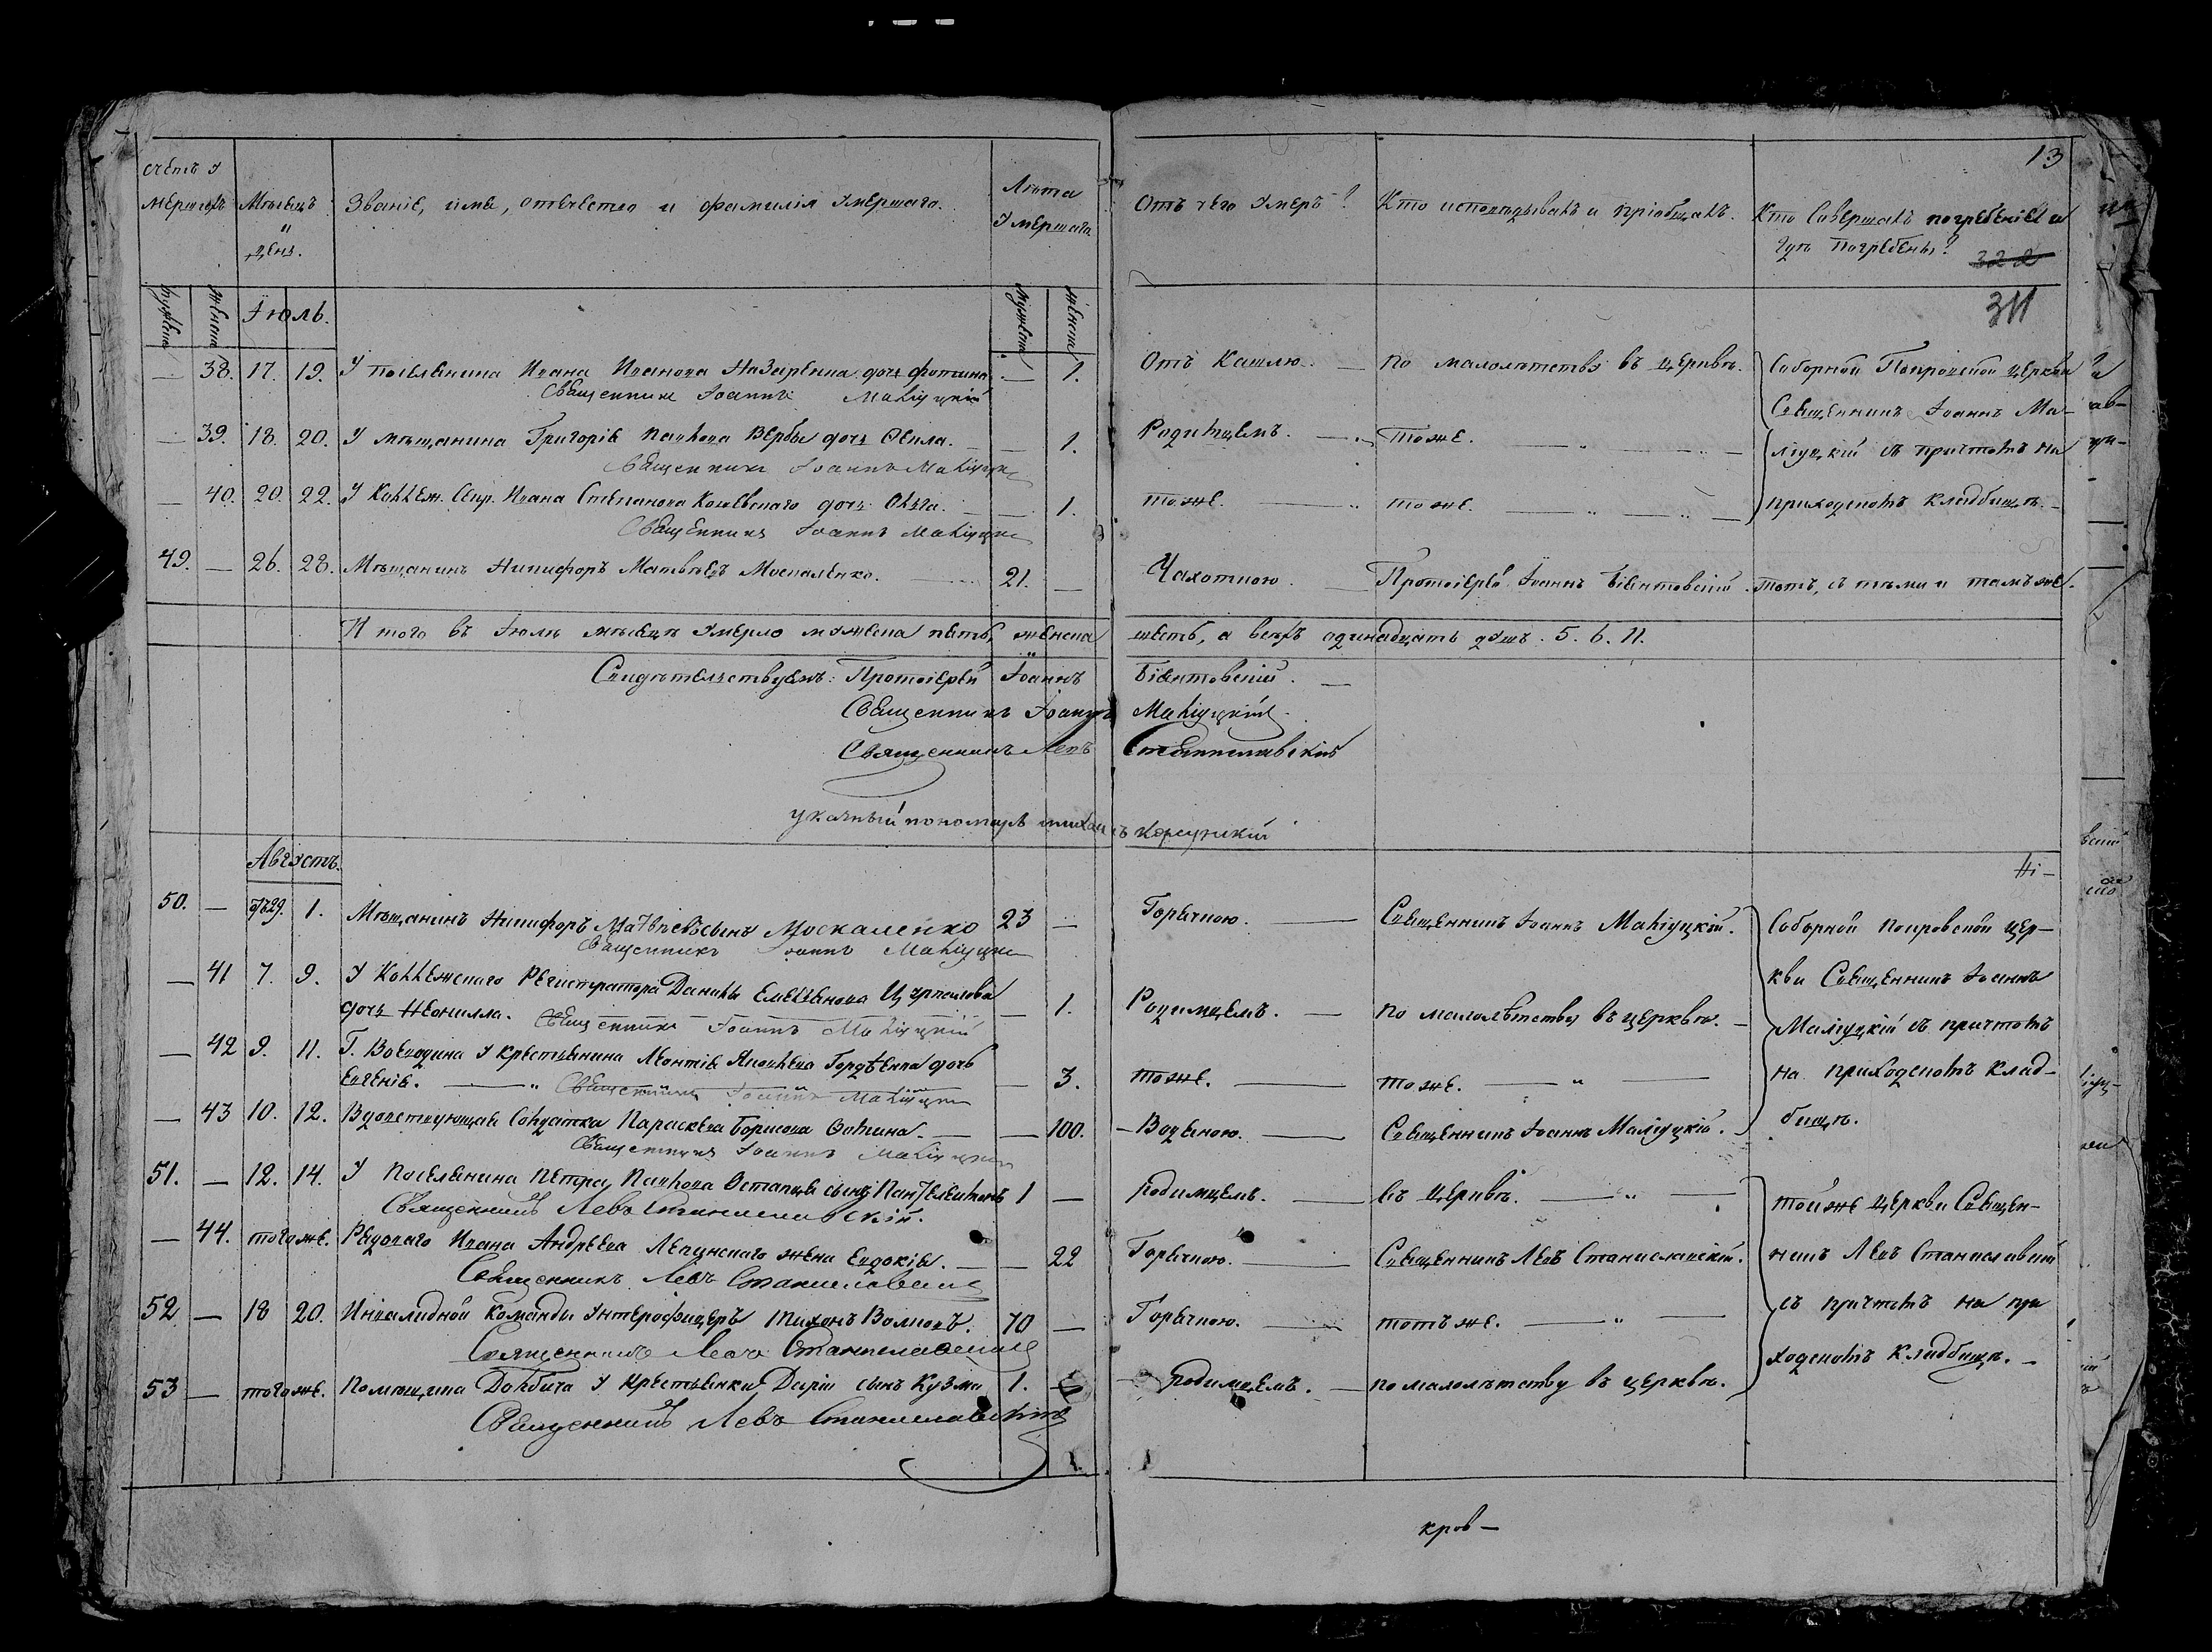 13
Счетъ у
мершихъ
Мѣсяцъ
и
день.
Званіе, имя, отечество и фамилія умершаго.
Лѣта
умершаго.
Отъ чего умеръ?
Кто исповѣдывалъ и пріобщалъ.
Кто совершалъ погребеніе и
гдѣ погребены?
322
311
мужеска
женска
Іюль.
мужеска
женска
— 38. 17. 19. У поселянина Ивана Иванова Назаренка дочь Фотина — 1. Отъ кашлю. — по малолѣтству въ церквѣ. Соборной Покровской церкви
Священникъ Іоаннъ Маліуцкій
Священникъ Іоаннъ Ма-
— 39. 18. 20. У мѣщанина Григорія Павлова Вербы дочь Ѳекла. — 1. Родимцемъ. — тоже. — ліуцкій съ причтомъ на
Священникъ Іоаннъ Маліуцкій
— 40. 20. 22. У Коллеж. Секр. Ивана Степанова дочь Ольга. — 1. тоже. — тоже. — приходскомъ кладбищѣ. —
Священникъ Іоаннъ Маліуцкій
49. — 26. 28. Мѣщанинъ Никифоръ Матвѣевъ Москаленко. 21. — Чахоткою. — Протоіерей Іоаннъ Біентовскій. тотъ, съ тѣми и тамъ же.
И того въ Іюлѣ мѣсяцѣ умерло мужеска пять, женска шесть, а всѣхъ одинадцать душъ. 5. 6. 11.
Свидѣтельствуемъ: Протоіерей Іоаннъ Біентовскій. —
Священникъ Іоаннъ Маліуцкій
Священникъ Левъ Станиславскій
указный пономарь
Августъ.
50. — 29. 1. Мѣщанинъ Никифоръ Матвіевъ сынъ Москаленко 23 — Горячкою. — Священникъ Іоаннъ Маліуцкій. Соборной Покровской цер-
Священникъ Іоаннъ Маліуцкій
— 41 7. 9. У Коллежскаго Регистратора Данилы Емельянова кви Священникъ Іоаннъ
дочь Неонилла. Священникъ Іоаннъ Маліуцкій — 1. Родимцемъ. — по малолѣтству въ церквѣ. — Маліуцкій съ причтомъ
— 42 9. 11. Г. Воеводина у крестьянина Леонтія Яковлева Гордѣенка дочь
Евгенія. — Священникъ Іоаннъ Маліуцкій — 3. тоже. — тоже. — на приходскомъ клад-
— 43 10. 12. Вдовствующая солдатка Параскева Борисова — 100. — Водяною. — Священникъ Іоаннъ Маліуцкій. бищѣ.
Священникъ Іоаннъ Маліуцкій
51. — 12. 14. У поселянина Петра Павлова Остапца сынъ Пантелеимонъ 1 — Родимцемъ. — въ церквѣ. — тойже церкви Священ-
Священникъ Левъ Станиславскій.
— 44. тогоже. Рядоваго Ивана Андреева жена Евдокія. — 22 Горячкою. — Священникъ Левъ Станиславскій. никъ Левъ Станиславскій
Священникъ Левъ Станиславскій
52 — 18 20. Инвалидной команды унтерофицеръ Тихонъ Волковъ. 70 — Горячкою. — тотъ же. — съ причтомъ на при
Священникъ Левъ Станиславскій
ходскомъ кладбищѣ. —
53 — тогоже. Помѣщика Довбича у крестьянки Даріи сынъ Кузма 1. — Родимцемъ. — по малолѣтству въ церквѣ.
Священникъ Левъ Станиславскій
кров—